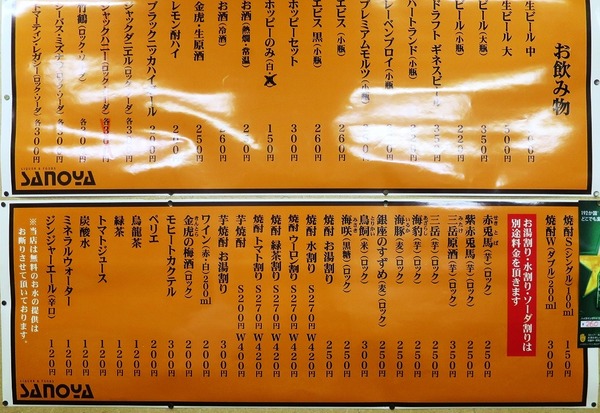 お飲み物
生ビール 中
生ビール 大 500円
ビール(大瓶) 350円
ビール(小瓶) 225円
ドラフト ギネスビール
ハートランド(小瓶)
レーベンブロイ(小瓶)
プレミアムモルツ(小瓶)
エビス(小瓶) 260円
エビス 黒(小瓶) 260円
ホッピーセット 300円
ホッピーのみ(白・黒) 150円
お酒(熱燗・常温) 200円
お酒(冷酒) 260円
金虎・生原酒 250円
レモン酎ハイ
ブラックニッカハイボール
ジャックダニエル(ロック・ソーダ)各300円
ジャックハニー(ロック・ソーダ)各300円
竹鶴(ロック・ソーダ)
ジーバス・ミズナラ(ロック・ソーダ)各350円
トマーティン・レガシー(ロック・ソーダ)各300円
LIQUOR & FOODS
SANOYA
焼酎S(シングル)100ml 150円
焼酎W(ダブル)200ml 300円
お湯割り・水割り・ソーダ割りは
別途料金を頂きます
赤兎馬(芋)(ロック) 250円
紫赤兎馬(芋)(ロック) 250円
三岳原酒(芋)(ロック) 250円
三岳(芋)(ロック) 250円
海豹(芋)(ロック) 250円
海豚(麦)(ロック) 250円
銀座のすずめ(麦)(ロック) 250円
鳥飼(米)(ロック) 250円
海咲(黒糖)(ロック) 250円
焼酎 お湯割り 250円
焼酎 水割り S270円 W420円
焼酎 ウーロン割り S270円 W420円
焼酎 緑茶割り S270円 W420円
焼酎 トマト割り S270円 W420円
芋焼酎 S200円 W400円
芋焼酎 お湯割り 300円
ワイン(赤・白)200ml 200円
金虎の梅酒(ロック) 200円
モヒートカクテル 300円
ペリエ 200円
烏龍茶 120円
緑茶 120円
トマトジュース 120円
炭酸水 120円
ミネラルウォーター 120円
ジンジャーエール(辛口) 120円
※当店は無料のお水の提供は
お断りさせて頂いております。
LIQUOR & FOODS
SANOYA